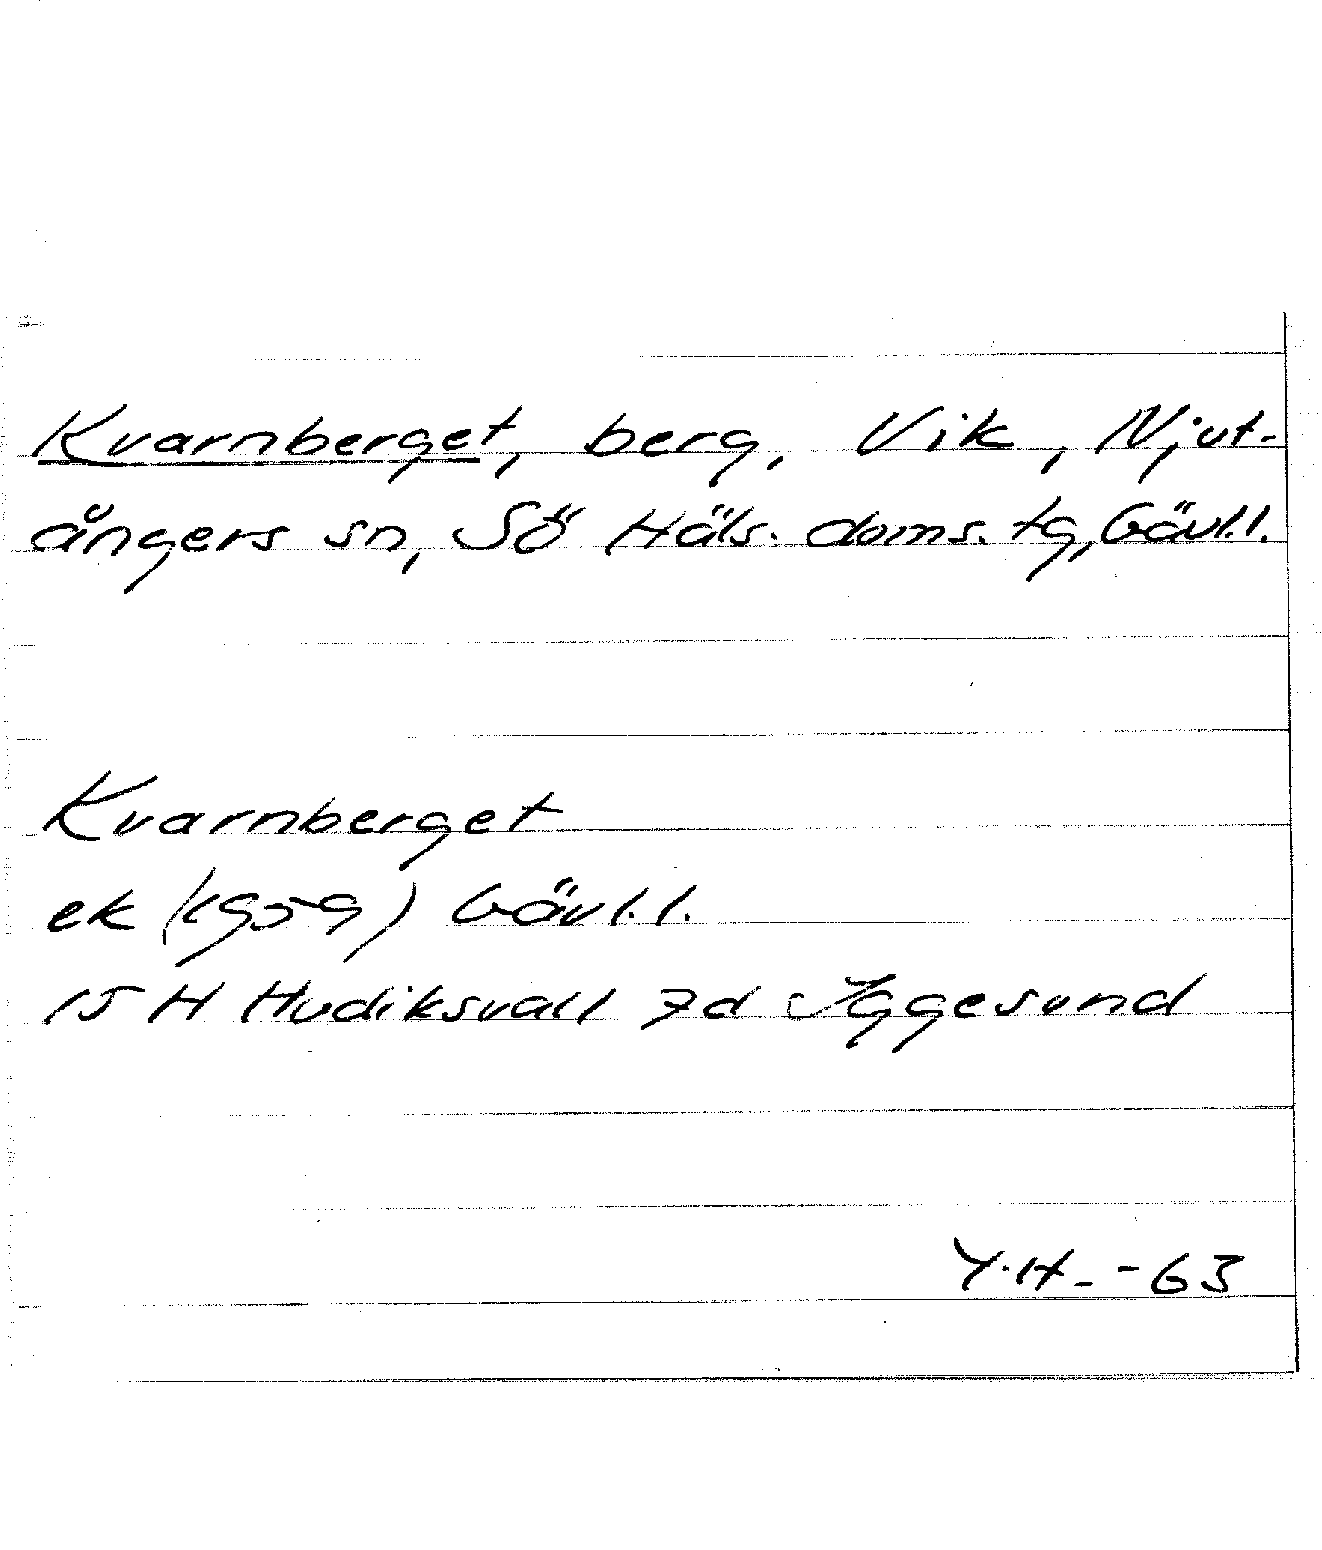 Kvarnberget, berg, Vik, Njut-
ångers sn, Sö Häls. doms. tg, Gävl.l.
Kvarnberget
ek (1959) Gävl.l.
15 H Hudiksvall 7d Iggesund
Y.H. -63